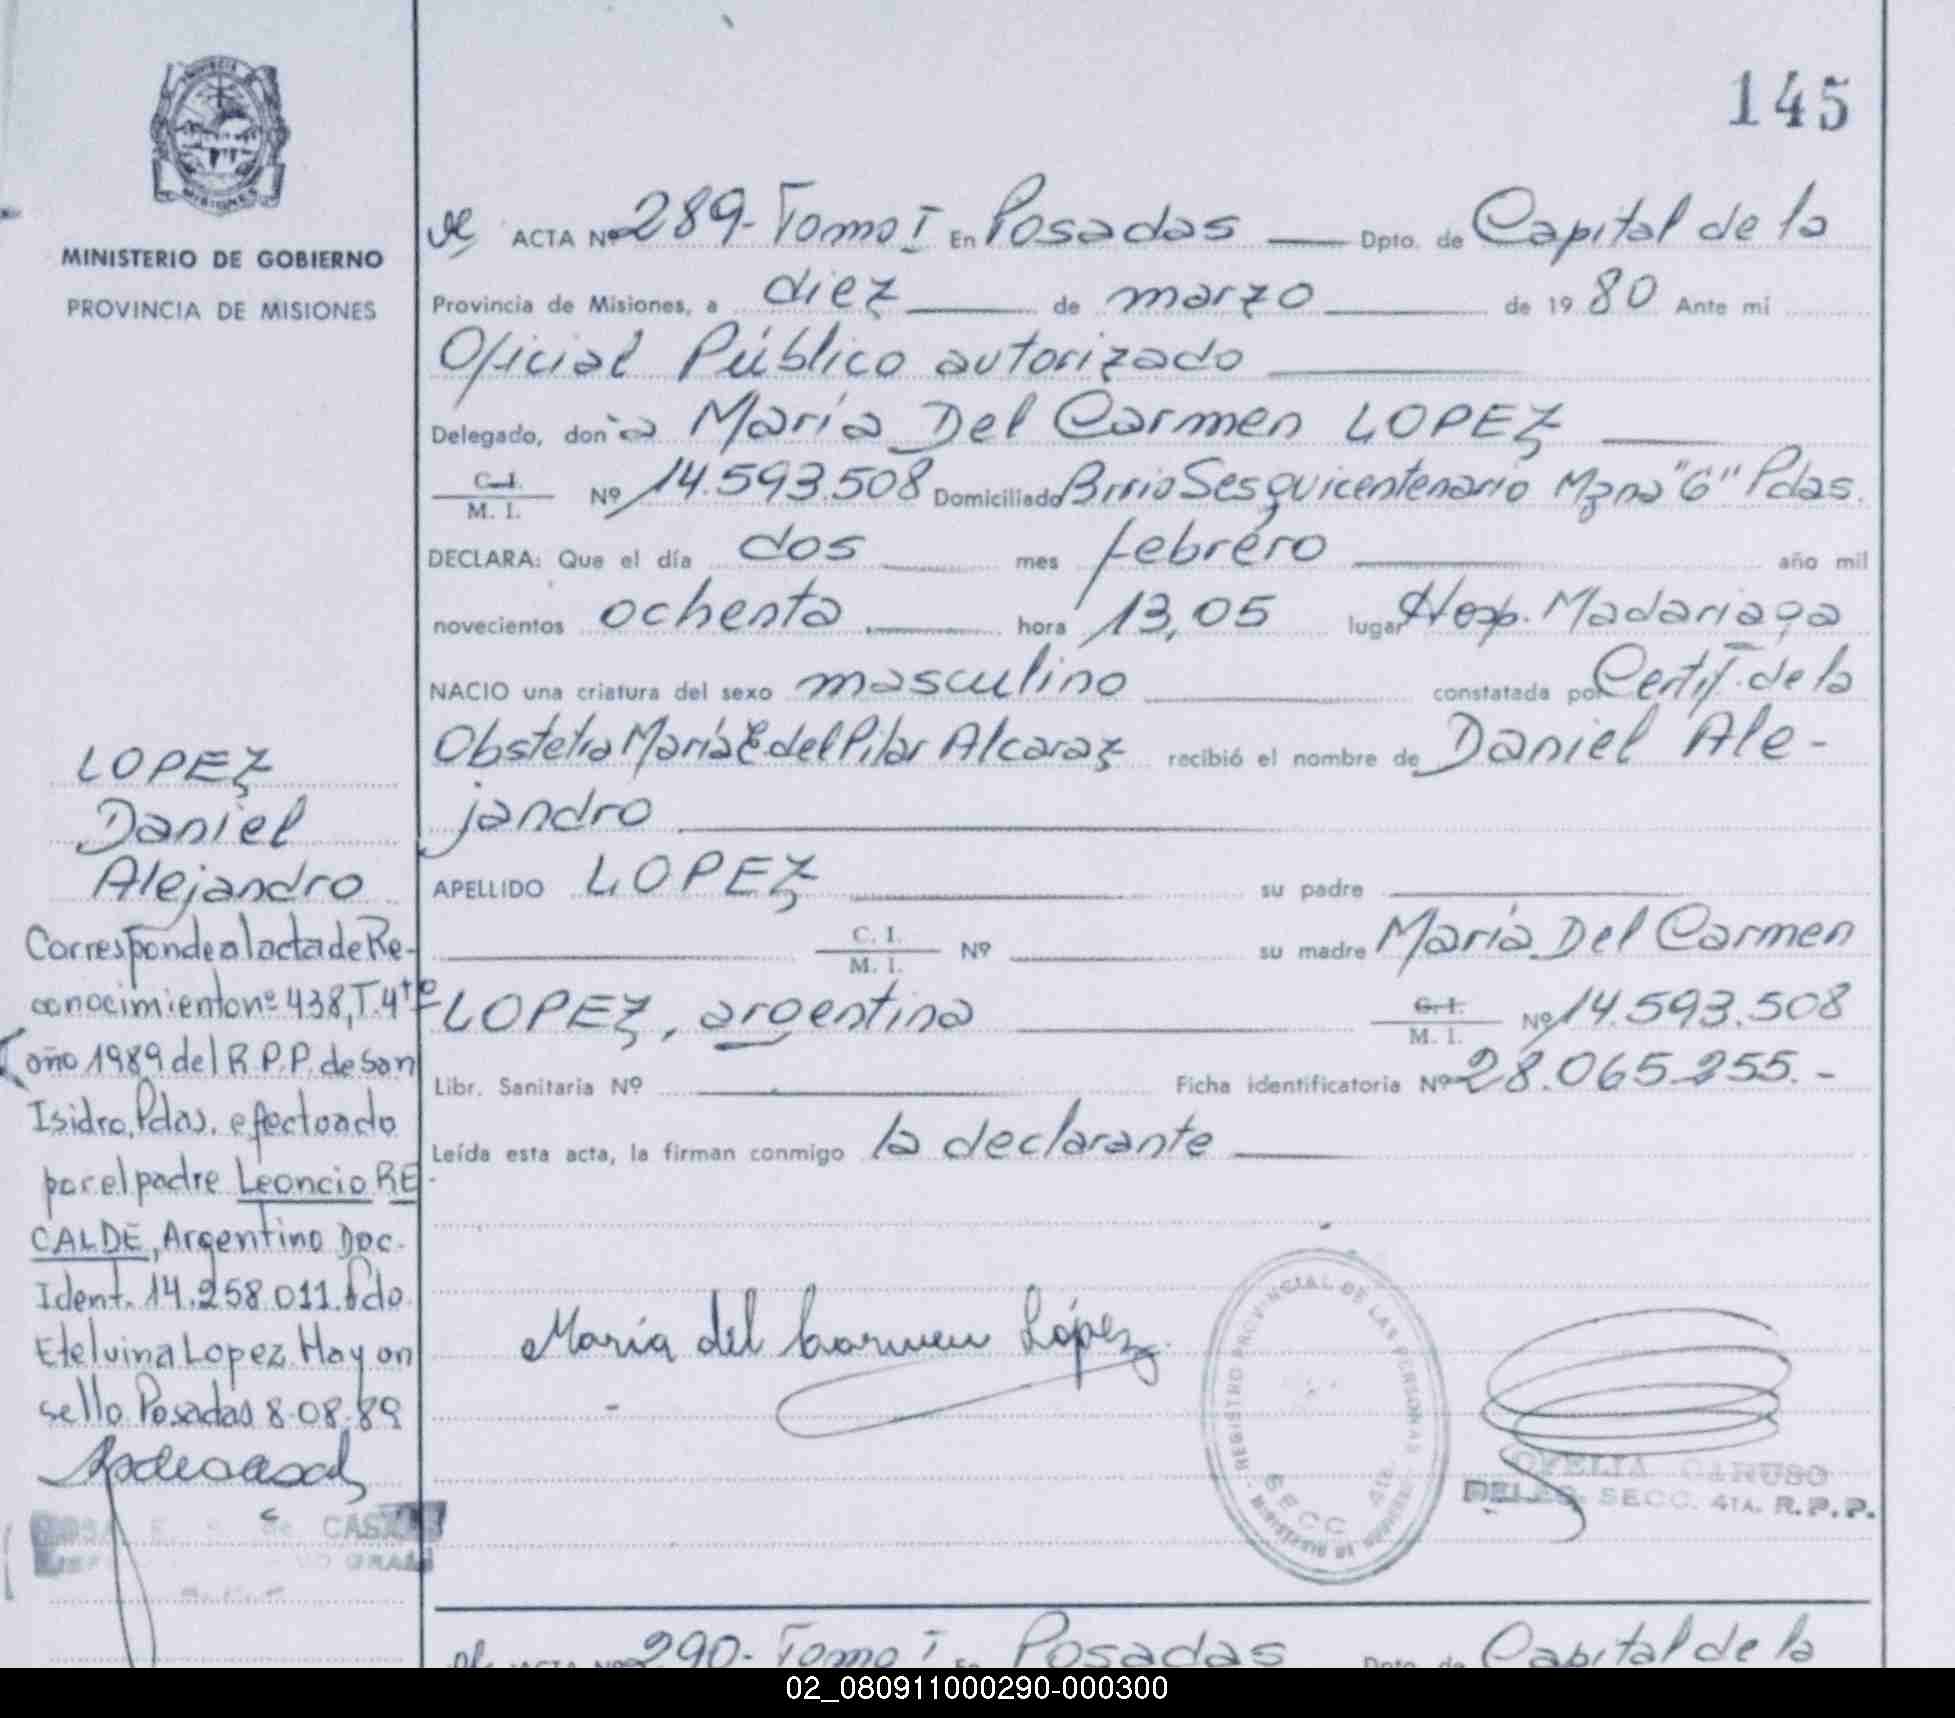 145
MINISTERIO DE GOBIERNO
PROVINCIA DE MISIONES
ACTA Nº 289- Tomo I En Posadas Dpto. de Capital de la
Provincia de Misiones, a diez de marzo de 1980 Ante mi
Oficial Público autorizado
Delegado, don̄a María Del Carmen LOPEZ
C.I.
M. I. Nº 14.593.508 Domiciliado Brrio Sesquicentenario Mzna "G" Pdas.
DECLARA: Que el día dos mes febrero año mil
novecientos ochenta hora 13,05 lugar Hosp. Madariaga
NACIO una criatura del sexo masculino constatada por Certif. de la
Obstetra María E. del Pilar Alcaraz recibió el nombre de Daniel Ale-
jandro
APELLIDO LOPEZ su padre
C. I.
M. I. Nº su madre María Del Carmen
LOPEZ, argentina C. I.
M. I. Nº 14.593.508
Libr. Sanitaria Nº Ficha identificatoria Nº 28.065.255.-
Leída esta acta, la firman conmigo la declarante
María del Carmen López
REGISTRO PROVINCIAL DE LAS PERSONAS
SECC 4ta.
OFELIA CARUSO
DELEG. SECC. 4TA. R.P.P.
LOPEZ
Daniel
Alejandro
Corresponde al acta de Re-
conocimiento nº 438, T. 4to
año 1989 del R.P.P. de San
Isidro, Pdas. efectuado
por el padre Leoncio RE
CALDE, Argentino Doc.
Ident. 14.258.011. fdo.
Etelvina Lopez. Hay un
sello. Posadas 8-08-89
ACTA Nº 290- Tomo I En Posadas Dpto. de Capital de la
02_080911000290-000300